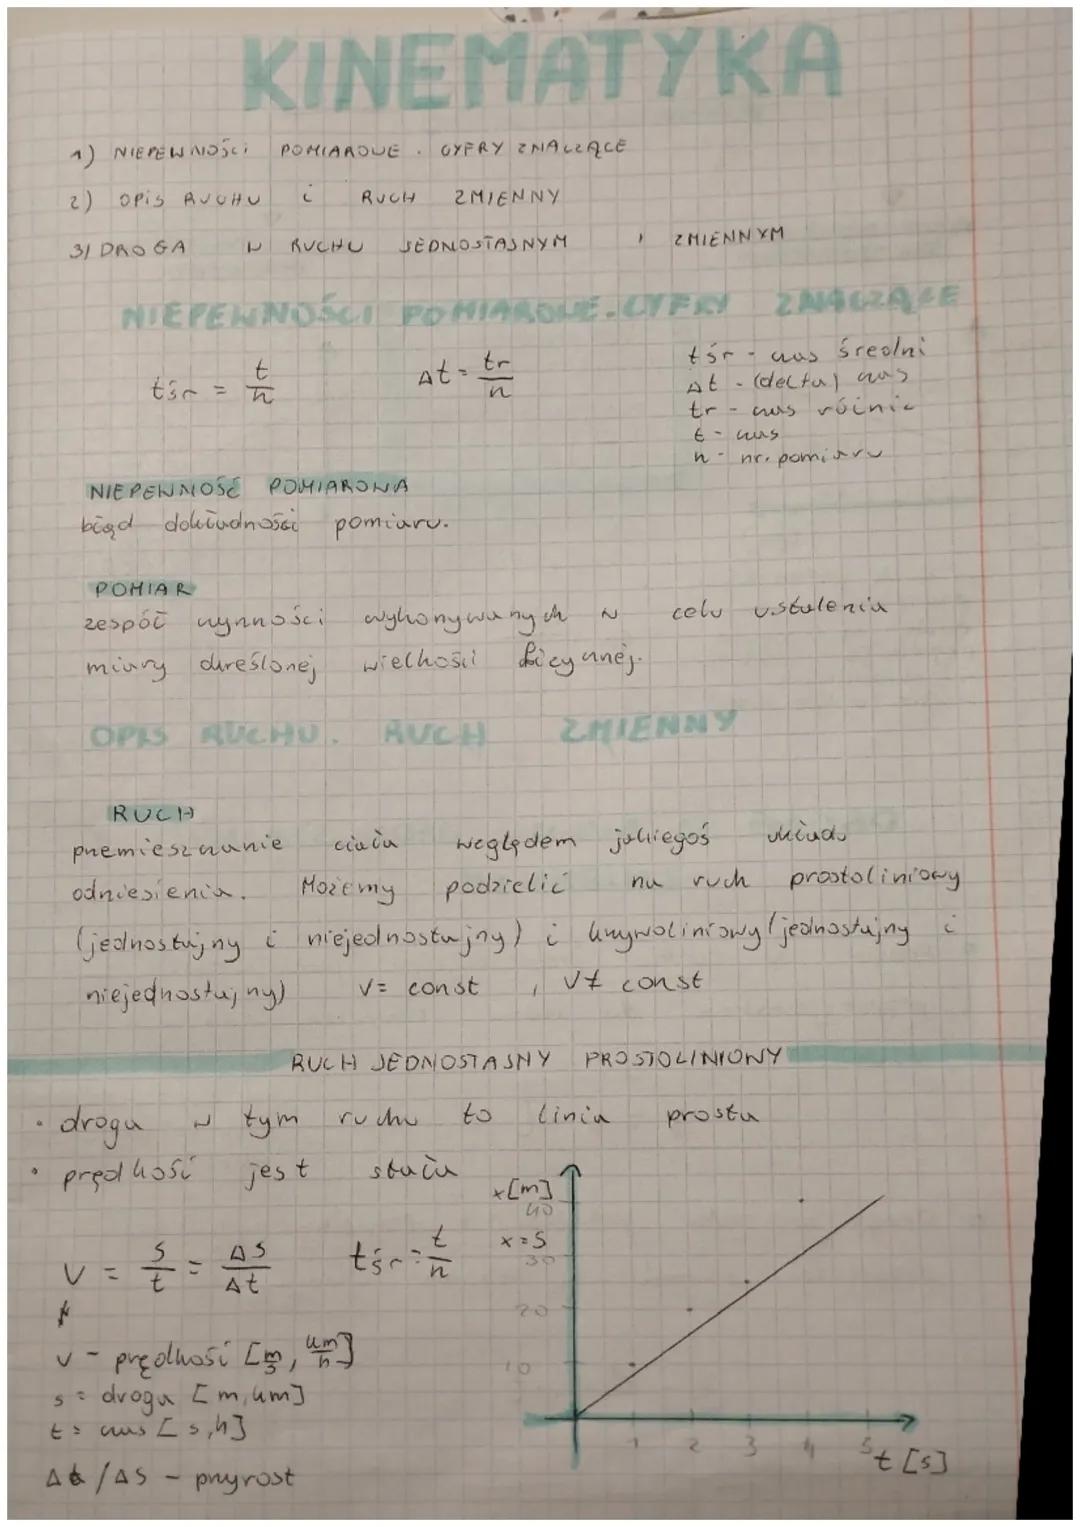 KINEMATYKA
1) NIEPEWNOŚCI POMIAROWE. CYFRY ZNACZĄCE
2) OPIS RUCHU i RUCH ZMIENNY
3) DROGA W RUCHU JEDNOSTAJNYM i ZMIENNYM
NIEPEWNOŚCI POMIAROWE. CYFRY ZNACZĄCE
tśr = t/n
Δt = tr/n
tśr - czas średni
Δt - (delta) czas
tr - czas różnic
t - czas
n - nr. pomiaru
NIEPEWNOŚĆ POMIAROWA
błąd dokładności pomiaru.
POMIAR
zespół czynności wykonywanych w celu ustalenia
miary określonej wielkości fizycznej.
OPIS RUCHU. RUCH ZMIENNY
RUCH
przemieszczanie ciała względem jakiegoś układu
odniesienia. Możemy podzielić na ruch prostoliniowy
(jednostajny i niejednostajny) i krzywoliniowy (jednostajny i
niejednostajny) v = const , v ≠ const
RUCH JEDNOSTAJNY PROSTOLINIOWY
• droga w tym ruchu to linia prosta
• prędkość jest stała
v = s/t = Δs/Δt
tśr = t/n
v - prędkość [m/s, km/h]
s = droga [m, km]
t = czas [s, h]
Δt / Δs - przyrost
x [m]
40
x = s
30
20
10
1 2 3 4 5
t [s]